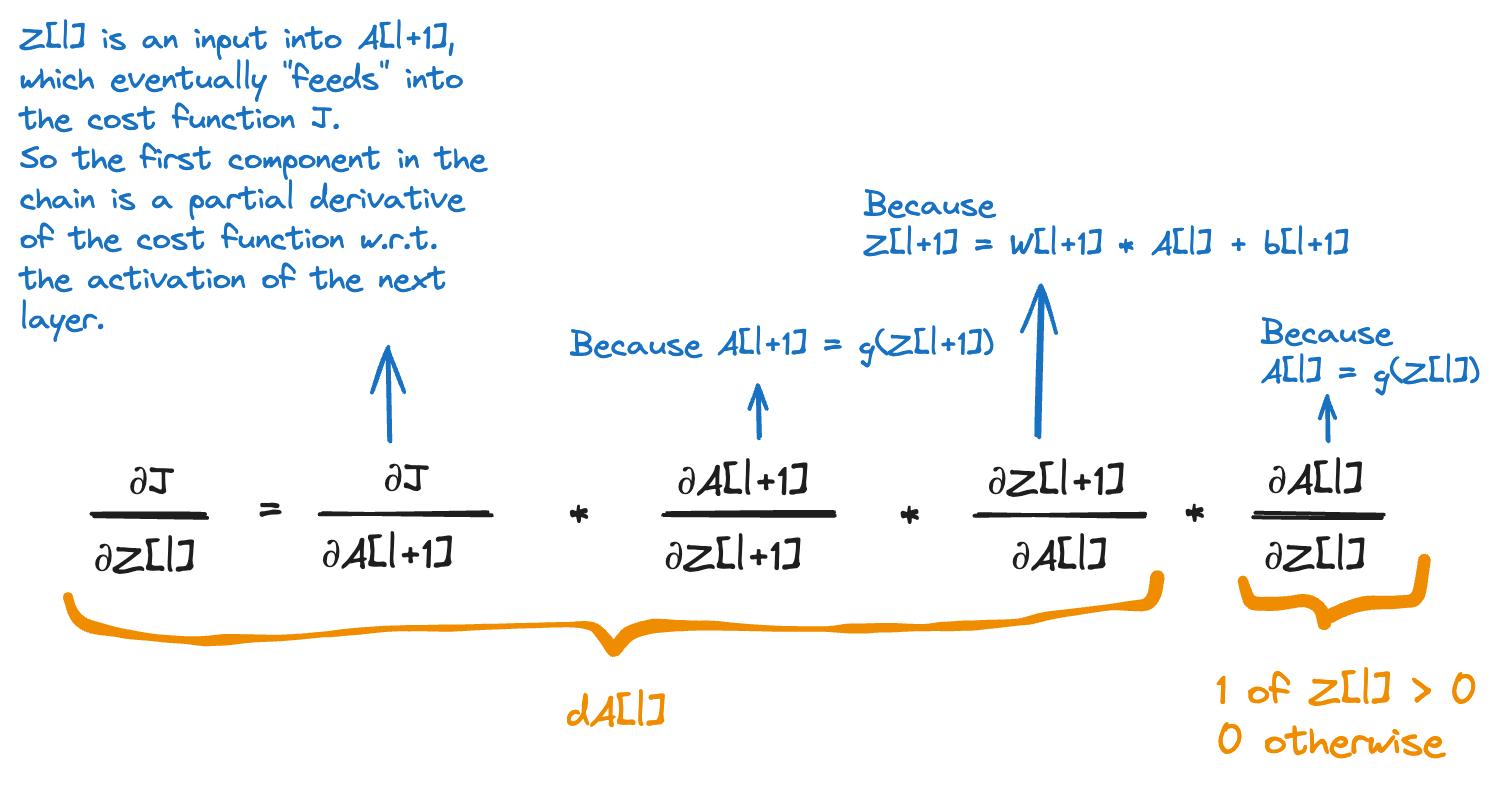 Z[l] is an input into A[l+1],
which eventually "feeds" into
the cost function J.
So the first component in the
chain is a partial derivative
of the cost function w.r.t.
the activation of the next
layer.
Because A[l+1] = g(Z[l+1])
Because
Z[l+1] = W[l+1] * A[l] + b[l+1]
Because
A[l] = g(Z[l])
∂J / ∂Z[l] = ∂J / ∂A[l+1] * ∂A[l+1] / ∂Z[l+1] * ∂Z[l+1] / ∂A[l] * ∂A[l] / ∂Z[l]
dA[l]
1 of Z[l] > 0
0 otherwise